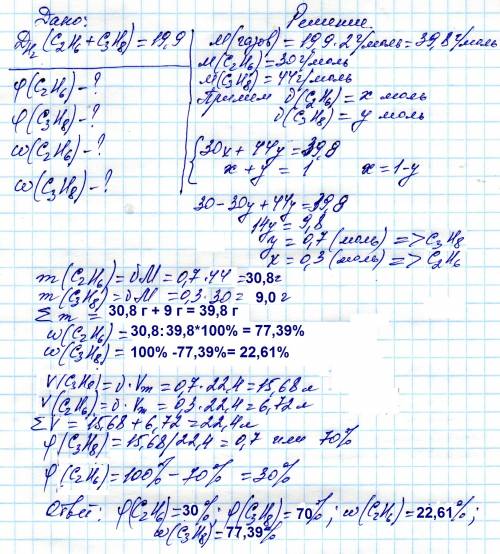 Дано:
D H₂ (C₂H₆ + C₃H₈) = 19,9
φ(C₂H₆) - ?
φ(C₃H₈) - ?
ω(C₂H₆) - ?
ω(C₃H₈) - ?
Решение
M(газов) = 19,9·2г/моль = 39,8г/моль
M(C₂H₆) = 30г/моль
M(C₃H₈) = 44г/моль
Примем υ(C₂H₆) = x моль
υ(C₃H₈) = y моль
30x + 44y = 39,8
x + y = 1 x = 1-y
30 - 30y + 44y = 39,8
14y = 9,8
y = 0,7 (моль) => C₃H₈
x = 0,3 (моль) => C₂H₆
m(C₂H₆) = υM = 0,7·44 = 30,8г
m(C₃H₈) = υM = 0,3·30 = 9,0 г
Σm = 30,8 г + 9 г = 39,8 г
ω(C₂H₆) = 30,8:39,8*100% = 77,39%
ω(C₃H₈) = 100% -77,39%= 22,61%
V(C₃H₈) = υ·Vm = 0,7·22,4 = 15,68 л
V(C₂H₆) = υ·Vm = 0,3·22,4 = 6,72 л
ΣV = 15,68 + 6,72 = 22,4 л
φ(C₃H₈) = 15,68/22,4 = 0,7 или 70%
φ(C₂H₆) = 100% - 70% = 30%
Ответ: φ(C₂H₆) = 30%; φ(C₃H₈) = 70%; ω(C₂H₆) = 22,61%;
ω(C₃H₈) = 77,39%